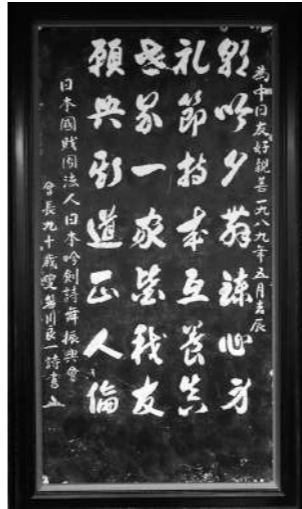 為中日友好親善一九八九年五月吉辰
朝吟夕舞錬心身
礼節持本互養真
世界一家皆我友
願與斯道正人倫
日本國財団法人日本吟剣詩舞振興會
會長九十歳叟笹川良一詩書